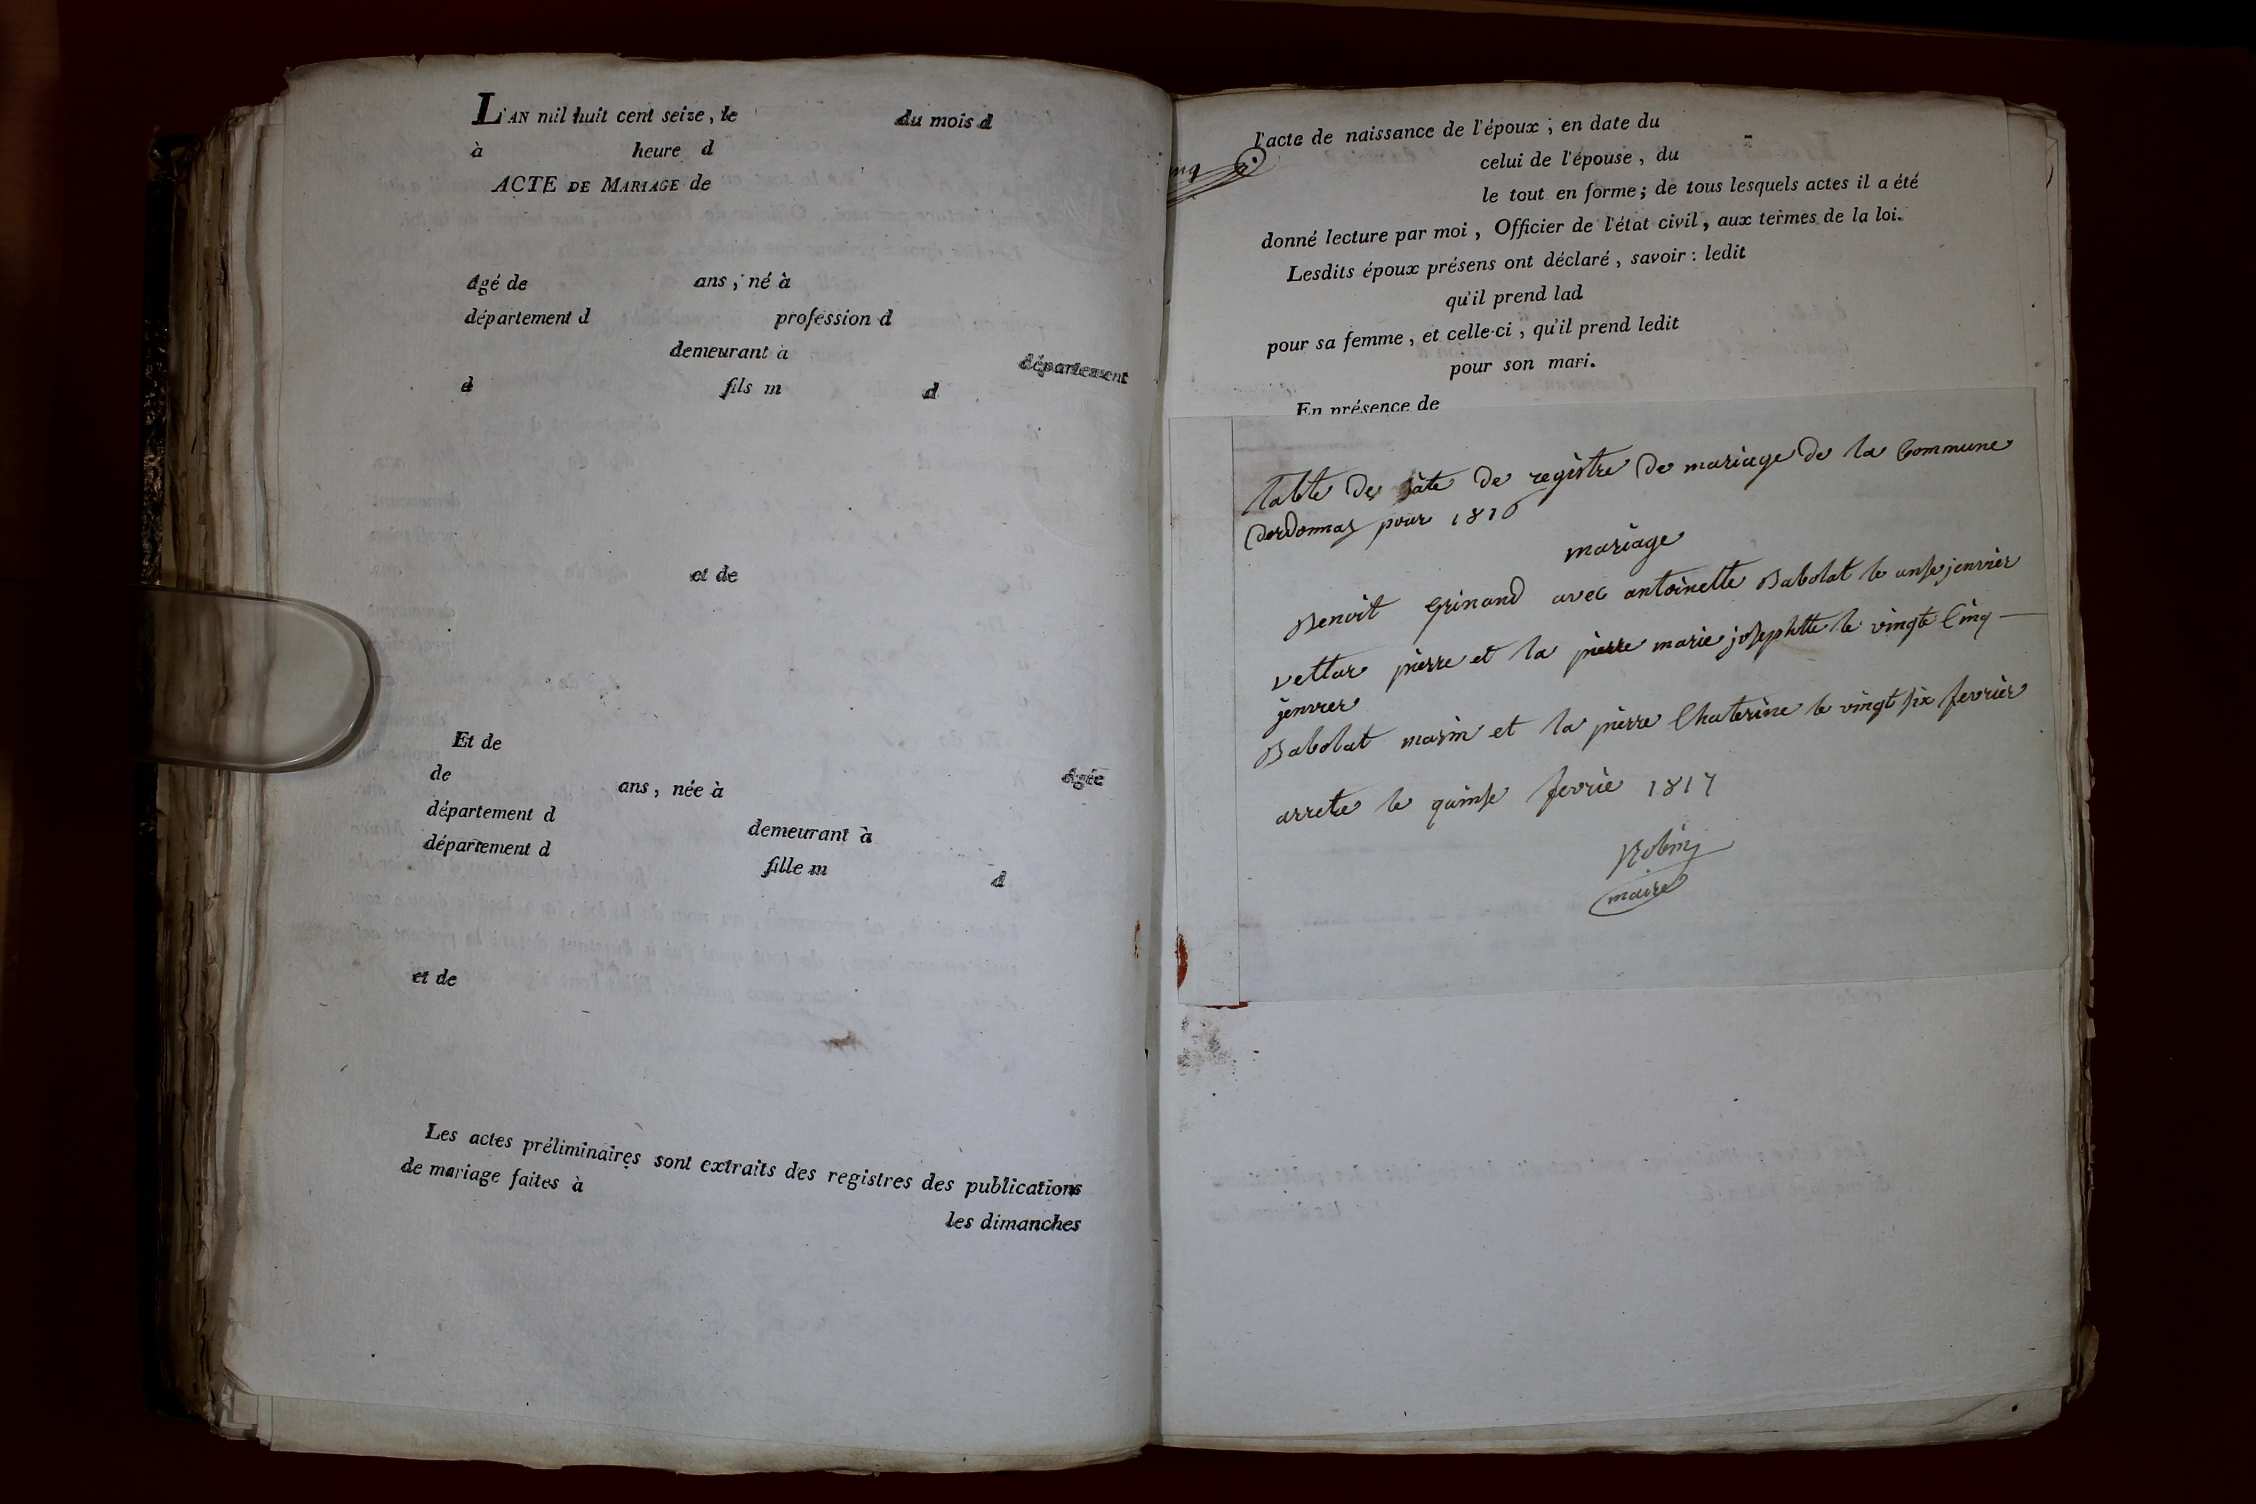 L'AN mil huit cent seize, le du mois d
à heure d
ACTE DE MARIAGE de
âgé de ans, né à
département d profession d
demeurant à département
d fils m d
et de
Et de âgée
de ans, née à
département d demeurant à
département d fille m d
et de
Les actes préliminaires sont extraits des registres des publications
de mariage faites à
les dimanches
l'acte de naissance de l'époux; en date du
celui de l'épouse, du
le tout en forme; de tous lesquels actes il a été
donné lecture par moi, Officier de l'état civil, aux termes de la loi.
Lesdits époux présens ont déclaré, savoir: ledit
qu'il prend lad
pour sa femme, et celle-ci, qu'il prend ledit
pour son mari.
En présence de
table de date de registre de mariage de la Commune
dordonnaz pour 1816
mariage
Benoit Grinand avec antoinette Babolat le onse jenvier
vettar pierre et la pierre marie josephtte le vingte Cinq
jenvrer
Babolat marin et la pierre Chaterine le vingt six fevrier
arrete le quinse fevrie 1817
Robin
maire